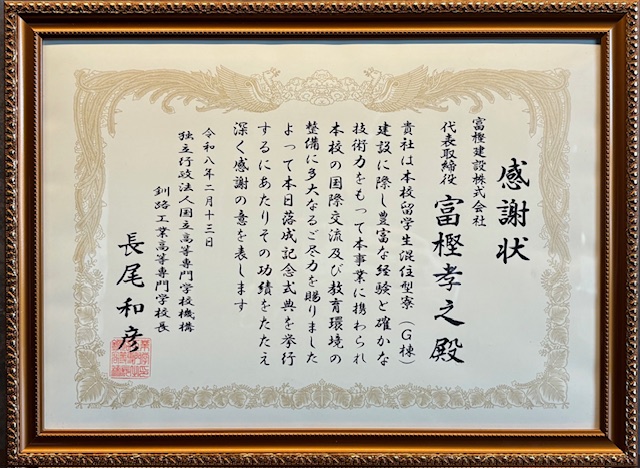 感謝状
富樫建設株式会社
代表取締役 富樫孝之殿
貴社は本校留学生混住型寮（G棟）
建設に際し豊富な経験と確かな
技術力をもって本事業に携わられ
本校の国際交流及び教育環境の
整備に多大なるご尽力を賜りました
よって本日落成記念式典を挙行
するにあたりその功績をたたえ
深く感謝の意を表します
令和八年二月十三日
独立行政法人国立高等専門学校機構
釧路工業高等専門学校長
長尾和彦